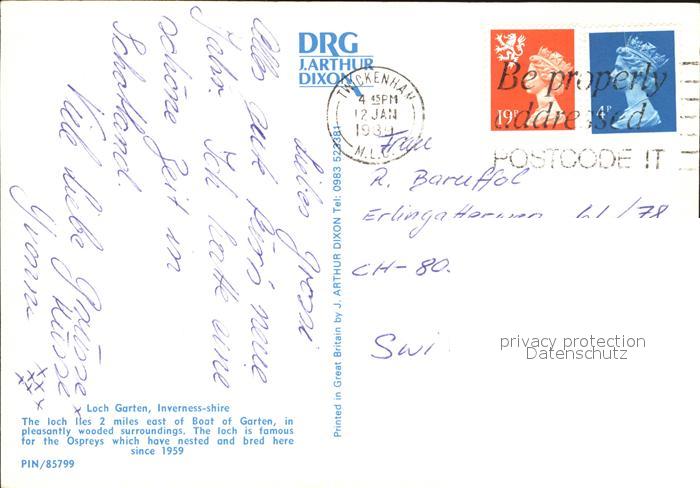 Liebes Grossi
Alles gute fürs neue
Jahr. Ich hatte eine
schöne Zeit in
Schottland.
Viele liebe Grüsse +
Küsse
Yvonne xxx
xx
DRG
J. ARTHUR
DIXON
TWICKENHAM
4 45PM
12 JAN
19
Be properly
addressed
POSTCODE IT
19P
4P
Frau
R. Baruffol
CH-80
Swi
privacy protection
Datenschutz
Printed in Great Britain by J. ARTHUR DIXON Tel: 0983 523381
Loch Garten, Inverness-shire
The loch lies 2 miles east of Boat of Garten, in
pleasantly wooded surroundings. The loch is famous
for the Ospreys which have nested and bred here
since 1959
PIN/85799